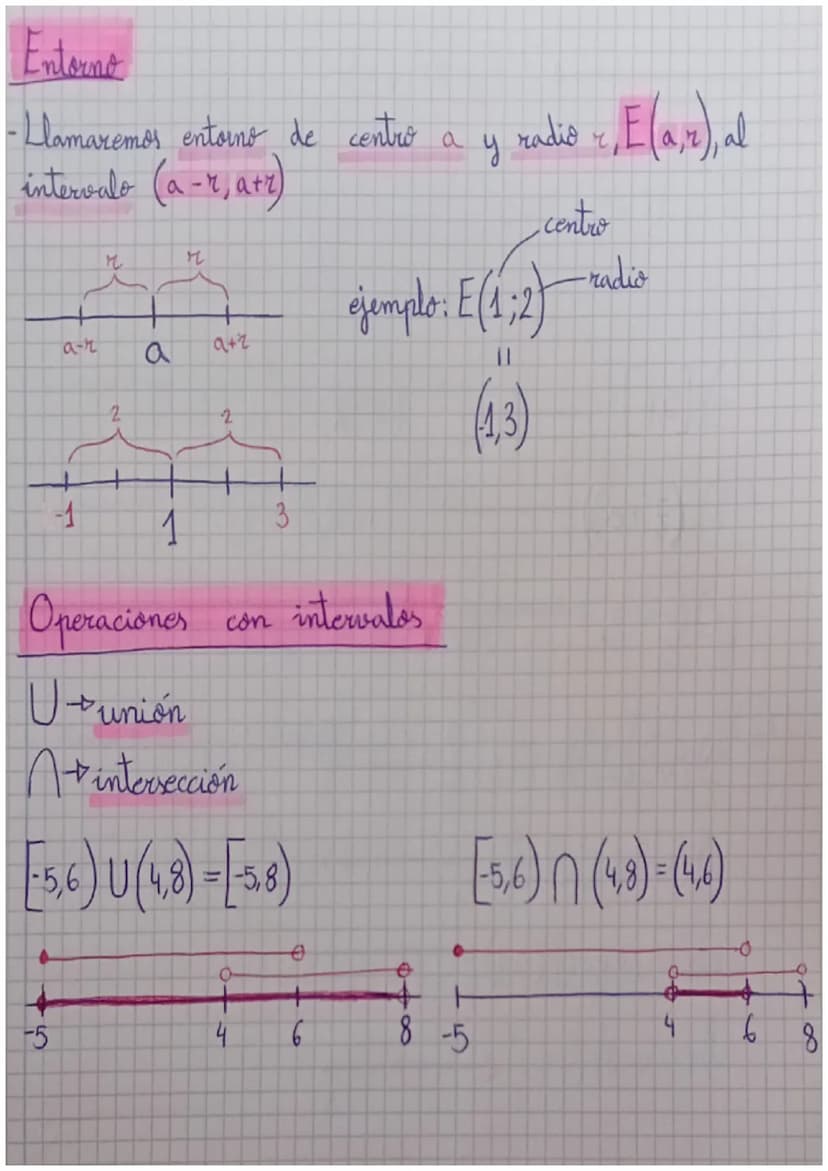 Entorno
- Llamaremos entorno de centro a y radio r, E(a,r), al
intervalo (a-r, a+r)
centro
radio
r r
a-r a a+r
ejemplo: E(1;2)
=
(-1,3)
2 2
-1 1 3
Operaciones con intervalos
U → unión
∩ → intersección
[-5,6) U (4,8) = [-5,8)
[-5,6) ∩ (4,8) = (4,6)
-5 4 6 8
-5 4 6 8